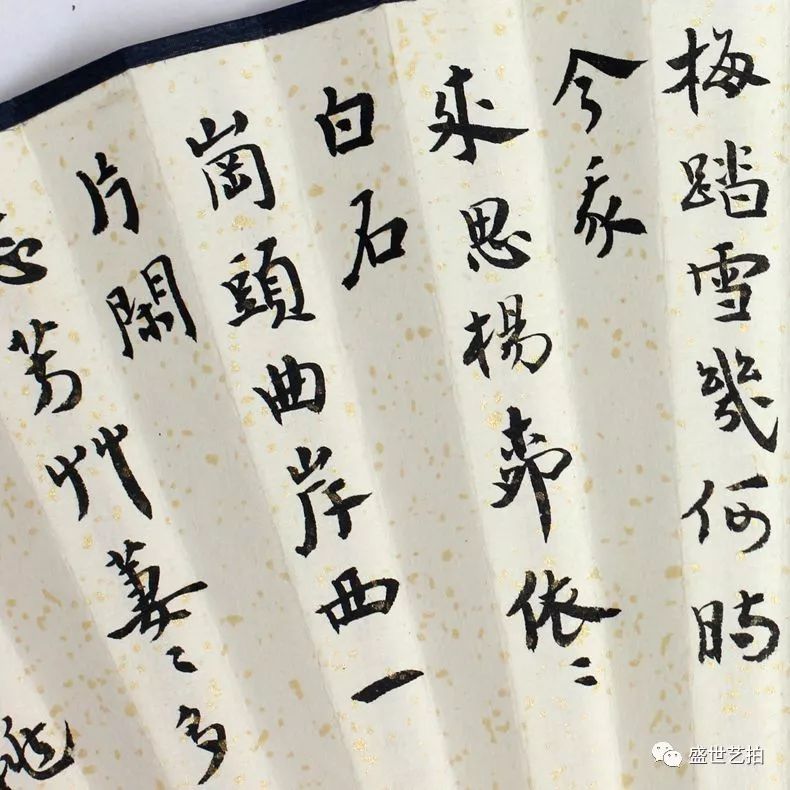 梅踏雪幾何時
今我
來思楊柳依々
白石
崗頭曲岸西一
片閑
芳艸萋々多
盛世艺拍